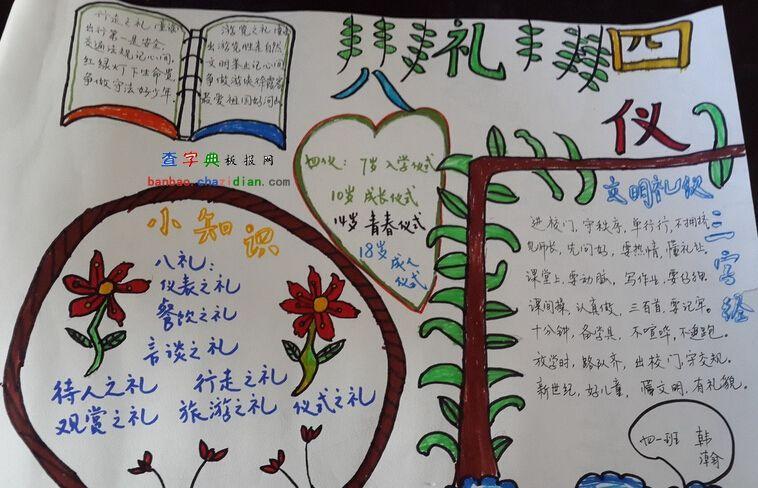 行走之礼
出行第一是安全，
交通法规记心间，
红绿灯下生命贵
争做守法好少年。
游览之礼
出游览胜看自然
文明举止记心间
争做游侠徐霞客
最爱祖国好河山
八礼四仪
查字典板报网
banbao.chazidian.com
四仪：7岁入学仪式
10岁成长仪式
14岁青春仪式
18岁成人
仪式
小知识
八礼：
仪表之礼
餐饮之礼
言谈之礼
待人之礼 行走之礼
观赏之礼 旅游之礼 仪式之礼
文明礼仪三字经
进校门，守秩序，单行行，不拥挤
见师长，先问好，要热情，懂礼
课堂上，要动脑，写作业，要仔细
课间操，认真做，三百首，要记牢。
十分钟，备学具，不喧哗，不追跑。
放学时，路队齐，出校门，守交规。
新世纪，好儿童，懂文明，有礼貌。
四一班 韩
瀚